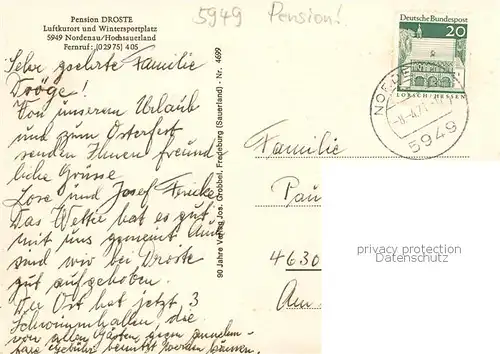 5949 Pension!
Pension DROSTE
Luftkurort und Wintersportplatz
5949 Nordenau/Hochsauerland
Fernruf: (0 29 75) 4 05
Sehr geehrte Familie
Dröge!
Von unserem Urlaub
und zum Osterfest
senden Ihnen freund
liche Grüsse
Lore und Josef
Das Wetter hat es gut
mit uns gemeint Auch
sind wir bei Droste
gut aufgehoben.
Der Ort hat jetzt 3
Schwimmhallen die
von allen Gästen gegen annehm-
bare Gebühr benutzt werden können.
90 Jahre Verlag Jos. Grobbel, Fredeburg (Sauerland) - Nr. 4699
Deutsche Bundespost
20
LORSCH/HESSEN
5949
Familie
Pau
4630
Am
privacy protection
Datenschutz